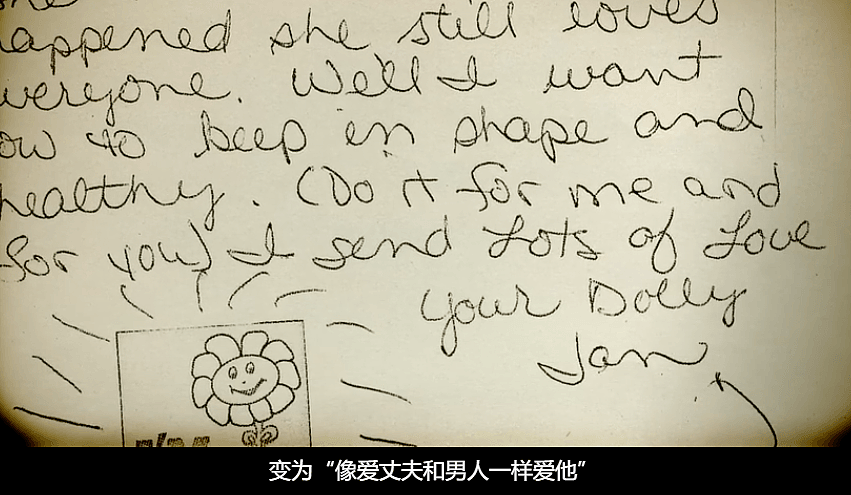 appened she still loves
veryone. Well I want
ow to keep in shape and
healthy. (Do it for me and
for you) I send Lots of Love
Your Dolly
Jan
变为“像爱丈夫和男人一样爱他”